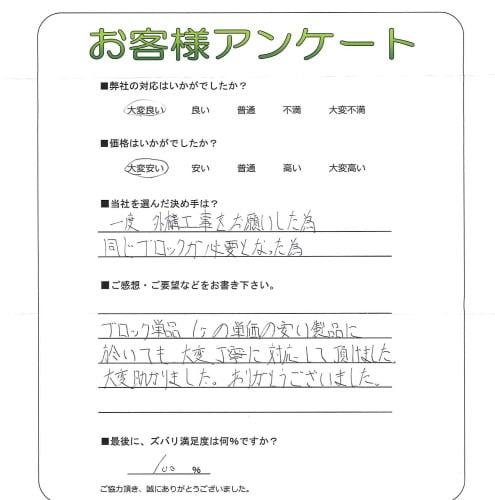 お客様アンケート
■弊社の対応はいかがでしたか?
大変良い 良い 普通 不満 大変不満
■価格はいかがでしたか?
大変安い 安い 普通 高い 大変高い
■当社を選んだ決め手は?
一度 外構工事をお願いした為
同じブロックが必要となった為
■ご感想・ご要望などをお書き下さい。
ブロック単品 1ヶの単価の安い製品に
於いても 大変丁寧に対応して頂けました
大変助かりました。ありがとうございました。
■最後に、ズバリ満足度は何%ですか?
100 %
ご協力頂き、誠にありがとうございました。